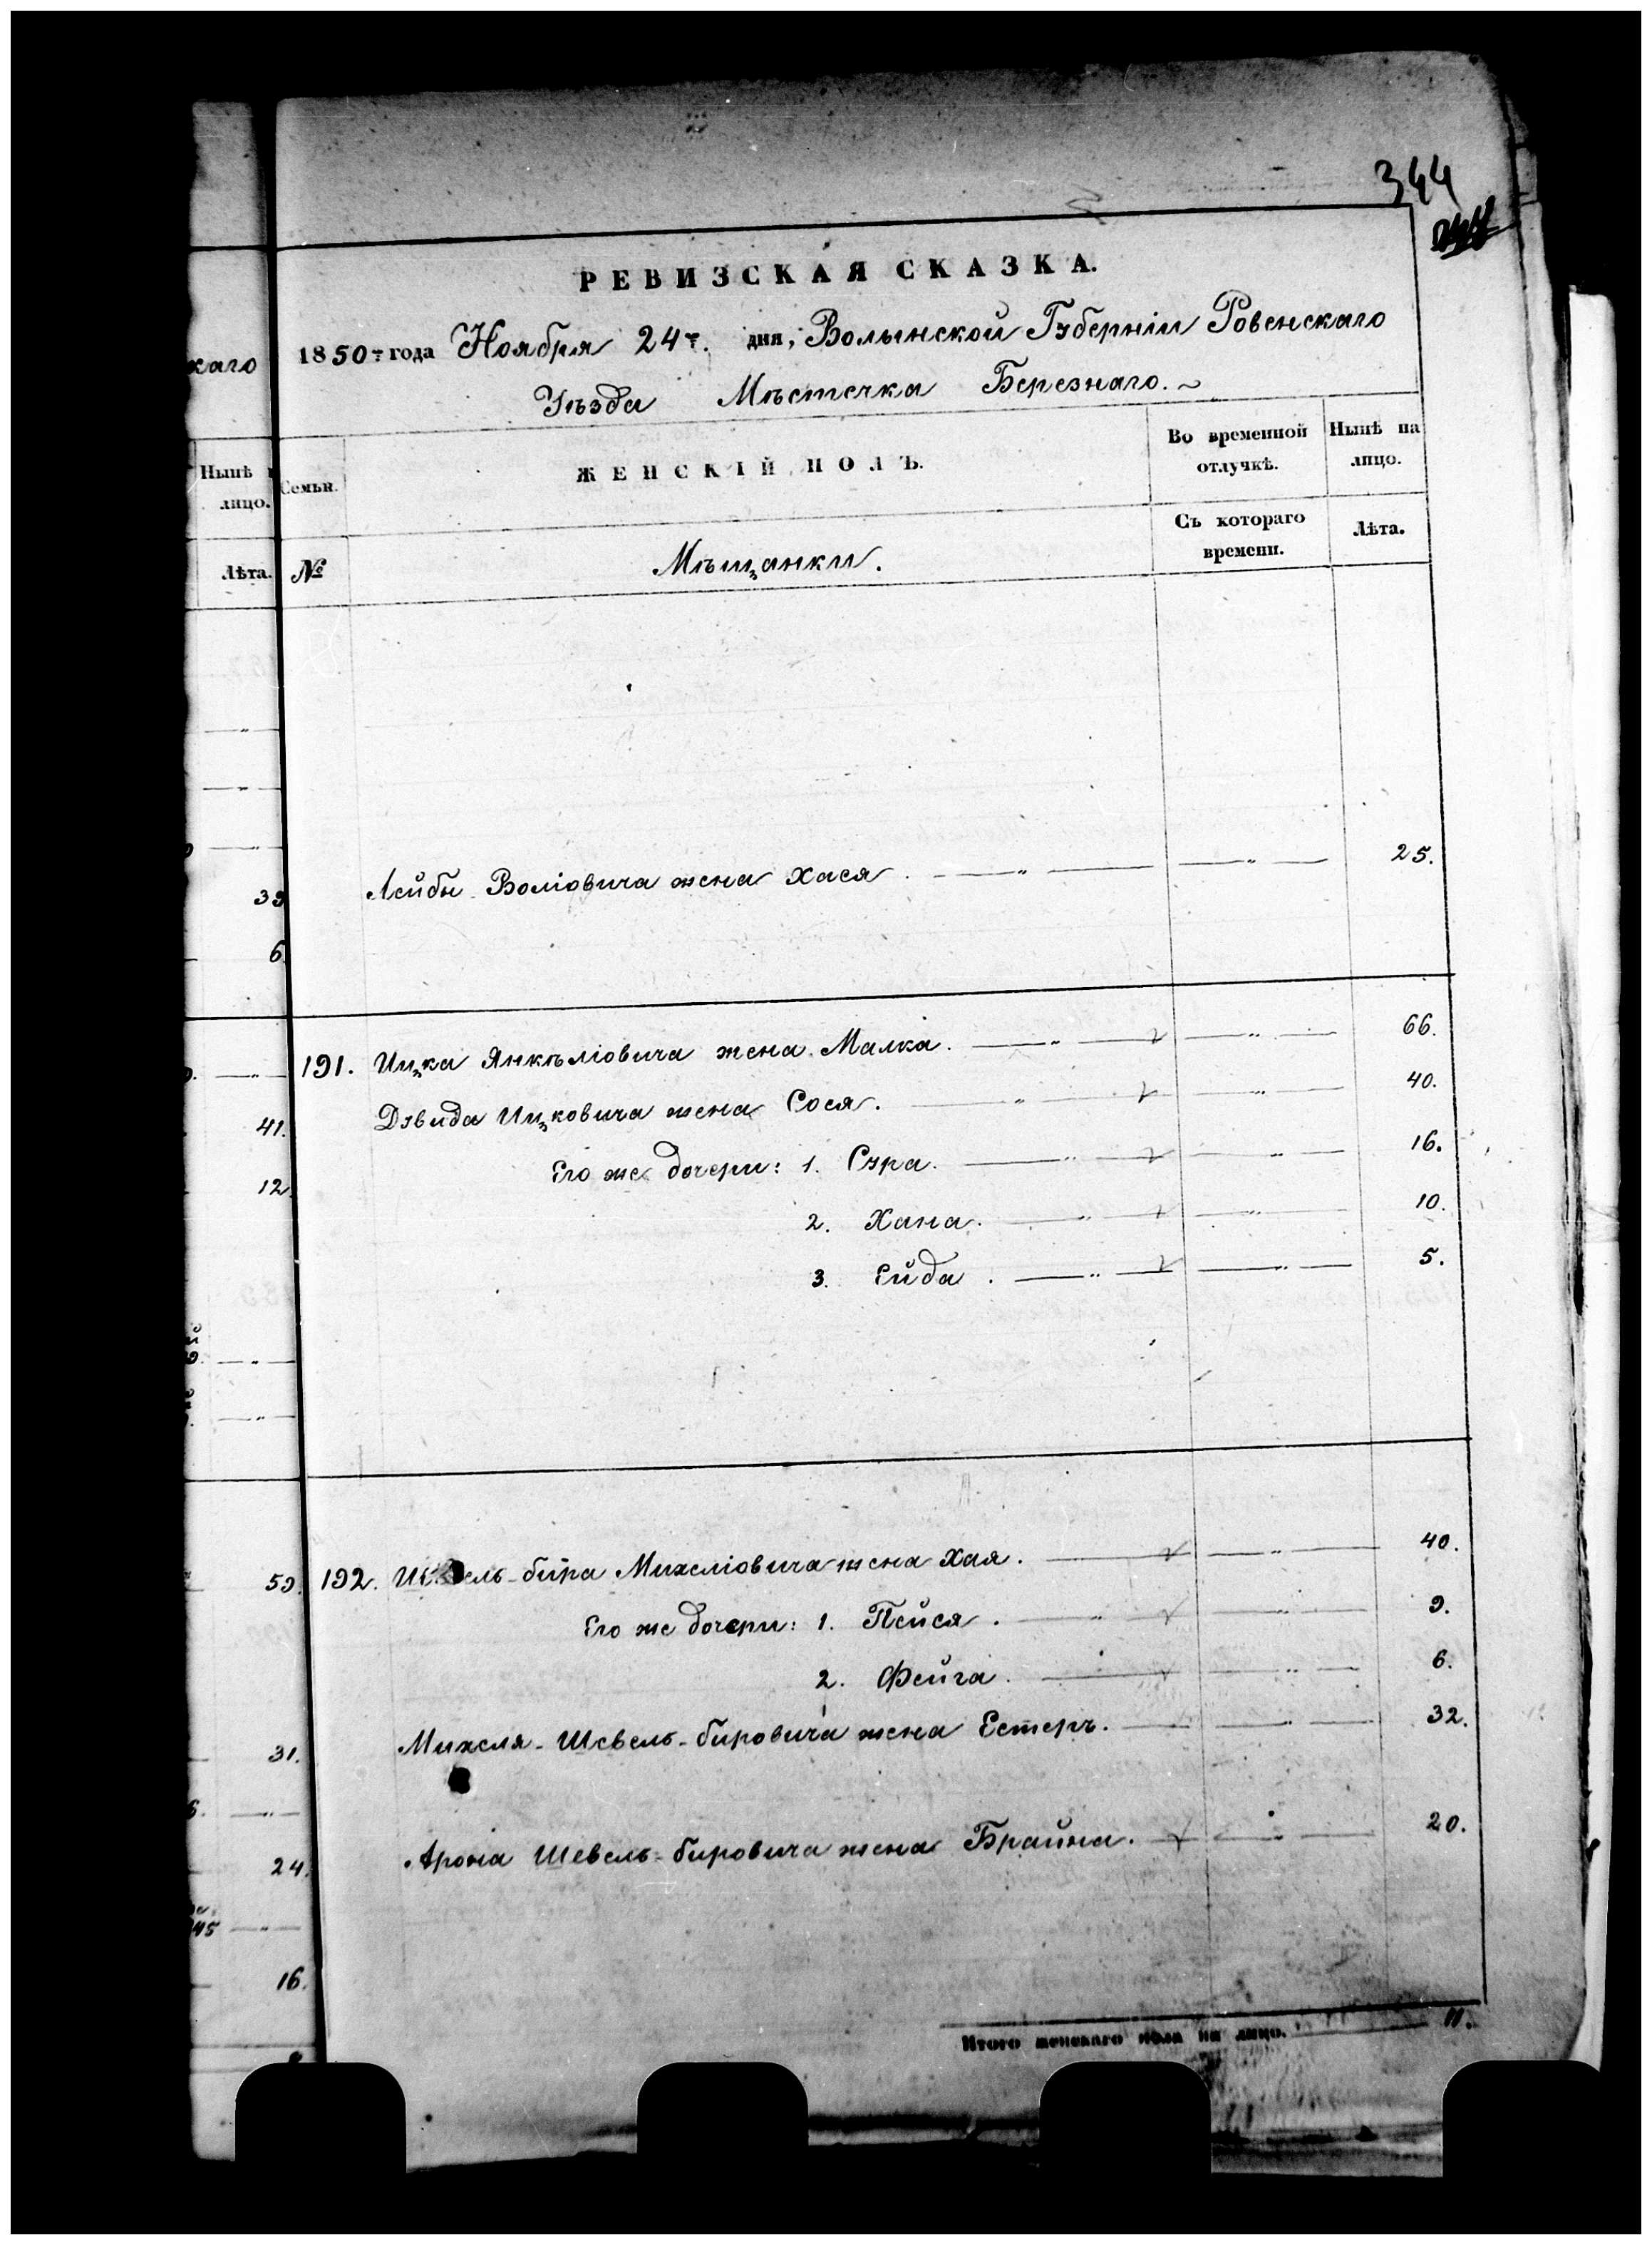 344
РЕВИЗСКАЯ СКАЗКА.
1850 года Ноября 24 дня, Волынской Губерніи Ровенскаго
Уѣзда Мѣстечка Березнаго.
каго
Нынѣ
лицо.
Лѣта.
Семьи.
№
ЖЕНСКІЙ ПОЛЪ.
Мѣщанки.
Во временной
отлучкѣ.
Съ котораго
времени.
Нынѣ на
лицо.
Лѣта.
Лейбы Воліовича жена Хася. 25.
39
6.
191. Ицка Янкѣліовича жена Малка. 66.
Дзвида Ицковича жена Сося. 40.
41.
Его же дочери: 1. Сура. 16.
12.
2. Хана. 10.
3. Ейда. 5.
59. 192. Шевель-бира Михеліовича жена Хая. 40.
Его же дочери: 1. Пейся. 9.
2. Фейга. 6.
Михеля-Шевель-бировича жена Естеръ. 32.
31.
Арона Шевель-бировича жена Брайна. 20.
24.
45
16.
Итого женскаго пола на лицо. 11.